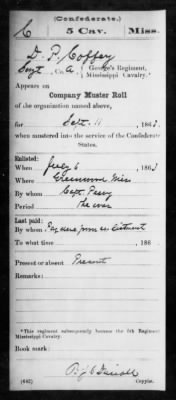 (Confederate.)
C 5 Cav. Miss.
D. P. Coffey
Sergt, Co. A, George's Regiment,
Mississippi Cavalry.*
Appears on
Company Muster Roll
of the organization named above,
for Sept. 11, 1863,
when mustered into the service of the Confederate
States.
Enlisted:
When July 6, 1863
Where Greenwood Miss
By whom Capt.
Period The war
Last paid:
By whom Pay due from enlistment
To what time , 186
Present or absent Present
Remarks:
*This regiment subsequently became the 5th Regiment
Mississippi Cavalry.
Book mark:
(642) Copyist.